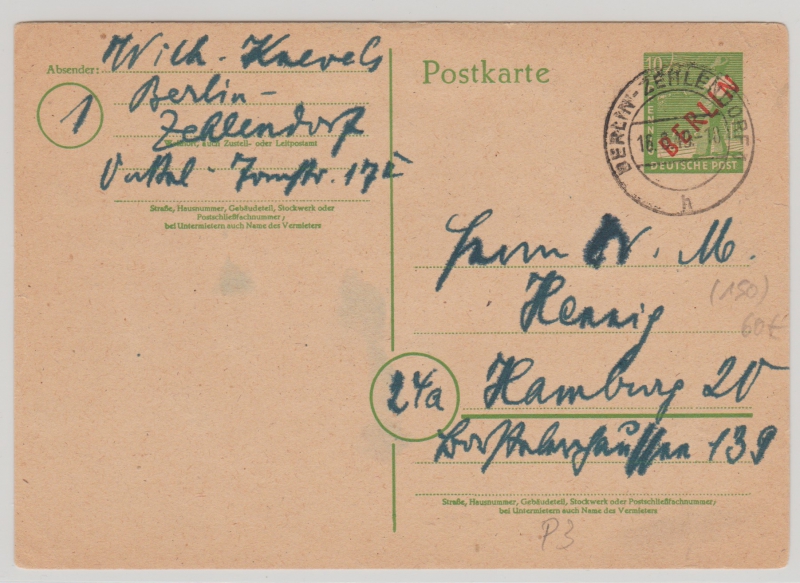 Absender: Wilh. Knevels
1
Berlin-
Zehlendorf
Wohnort, auch Zustell- oder Leitpostamt
Str. 17
Straße, Hausnummer, Gebäudeteil, Stockwerk oder
Postschließfachnummer;
bei Untermietern auch Name des Vermieters
Postkarte
10
DEUTSCHE POST
BERLIN
BERLIN-ZEHLENDORF
h
Herrn W. M.
Hennig
24a
Hamburg 20
Borstelerchaussee 139
Straße, Hausnummer, Gebäudeteil, Stockwerk oder Postschließfachnummer;
bei Untermietern auch Name des Vermieters
(150)
60€
P3